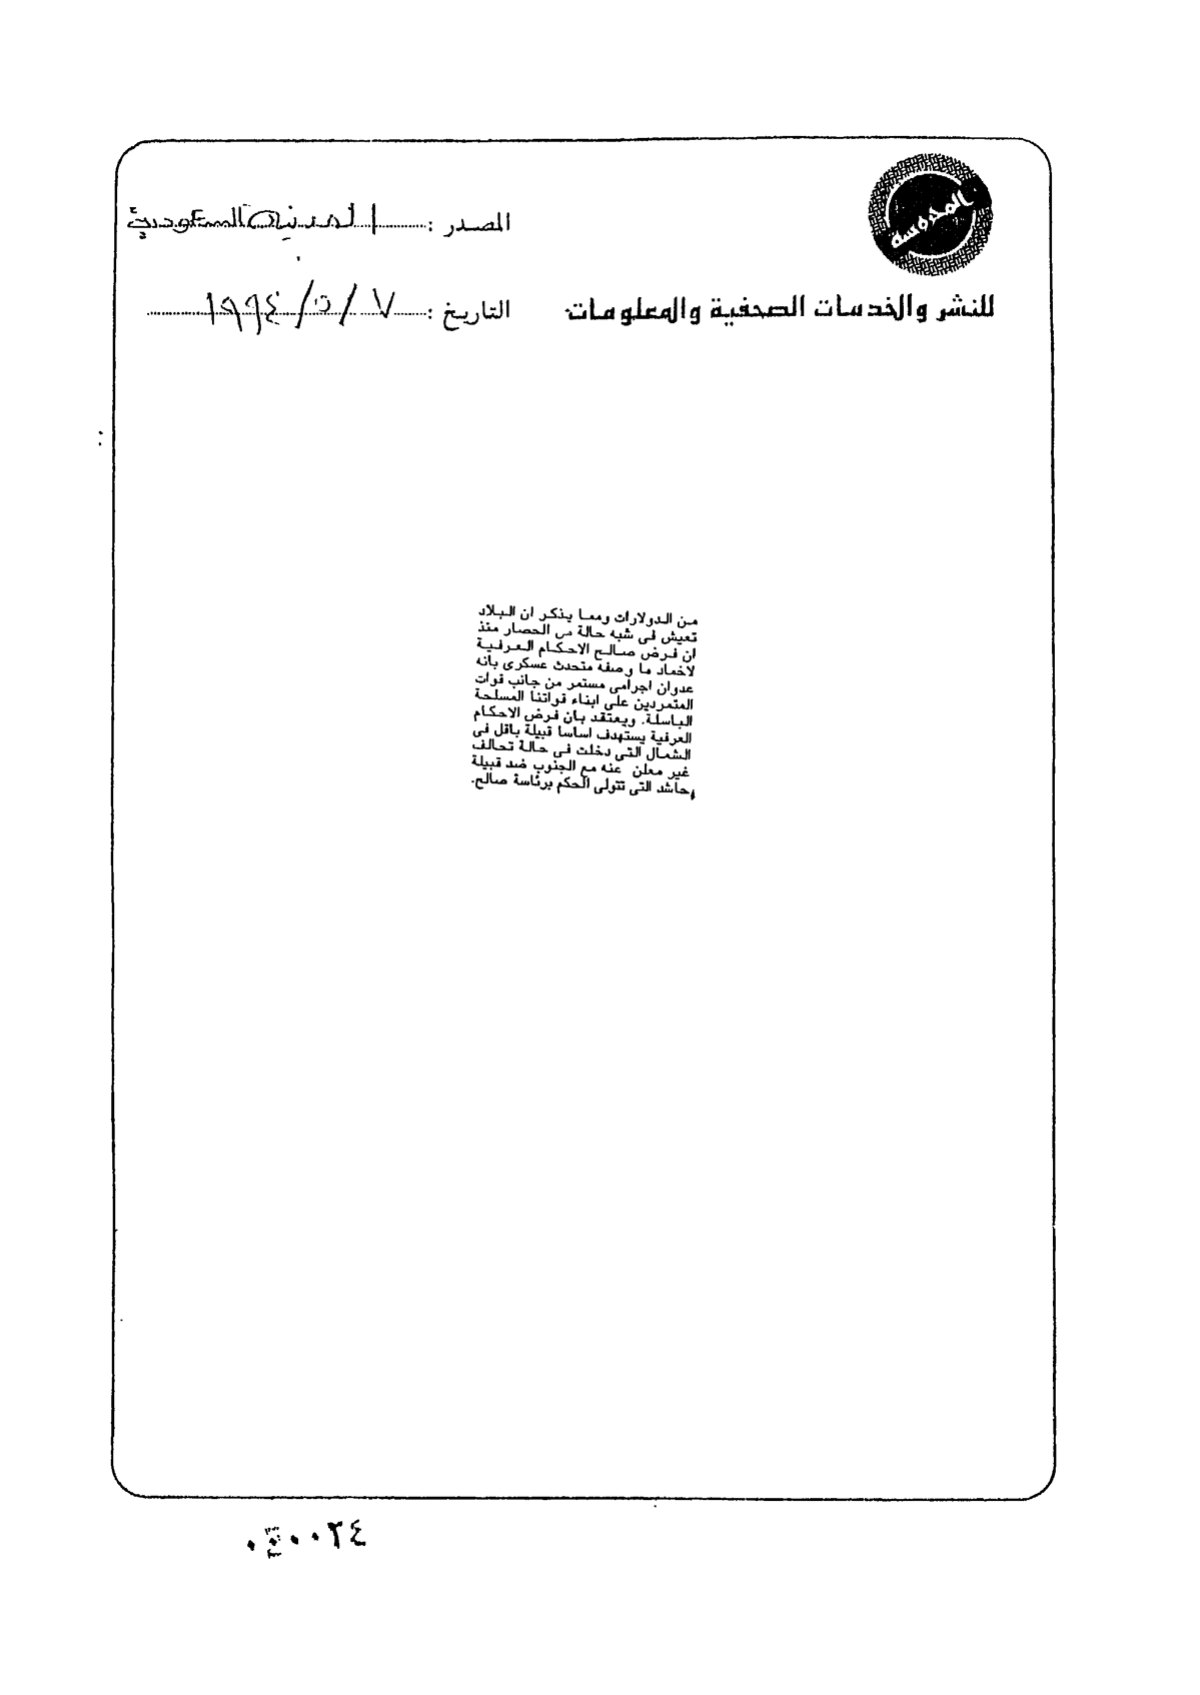 المحروسة
المصدر : المدينة السعودية
للنشر والخدسات الصحفية والمعلومات
التاريخ : ٧ / ٥ / ١٩٩٤
من الدولارات ومما يذكر ان البلاد
تعيش فى شبه حالة من الحصار منذ
ان فرض صالح الاحكام العرفية
لاخماد ما وصفه متحدث عسكرى بانه
عدوان اجرامى مستمر من جانب قوات
المتمردين على ابناء قواتنا المسلحة
الباسلة. ويعتقد بان فرض الاحكام
العرفية يستهدف اساسا قبيلة باقل فى
الشمال التى دخلت فى حالة تحالف
غير معلن عنه مع الجنوب ضد قبيلة
حاشد التى تتولى الحكم برئاسة صالح.